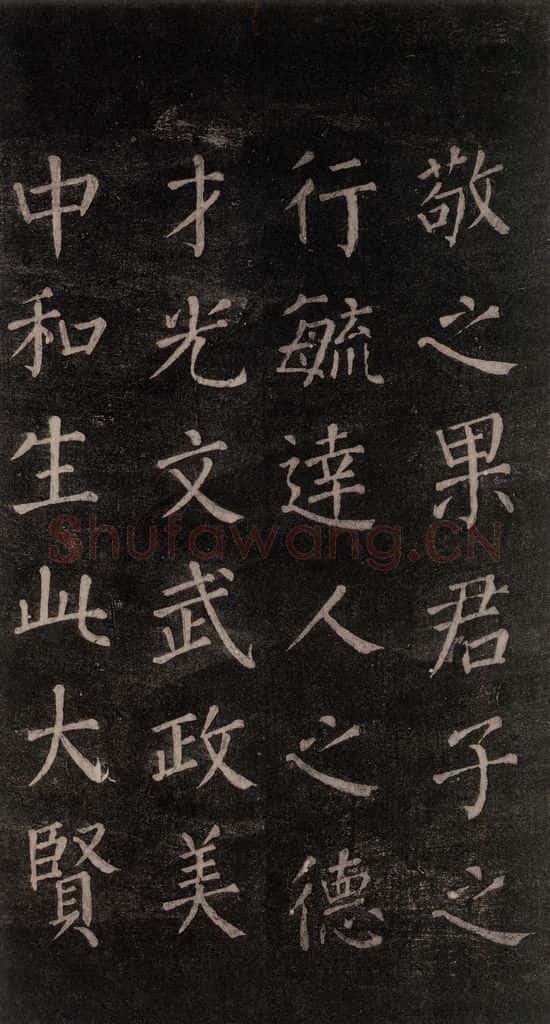 敬之果君子之
行毓達人之德
才光文武政美
中和生此大賢
Shufawang.CN